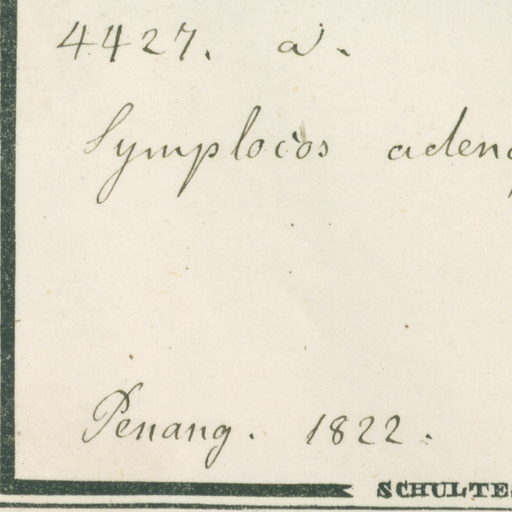 4427. a.
Symplocos aden
Penang. 1822.
SCHULTE